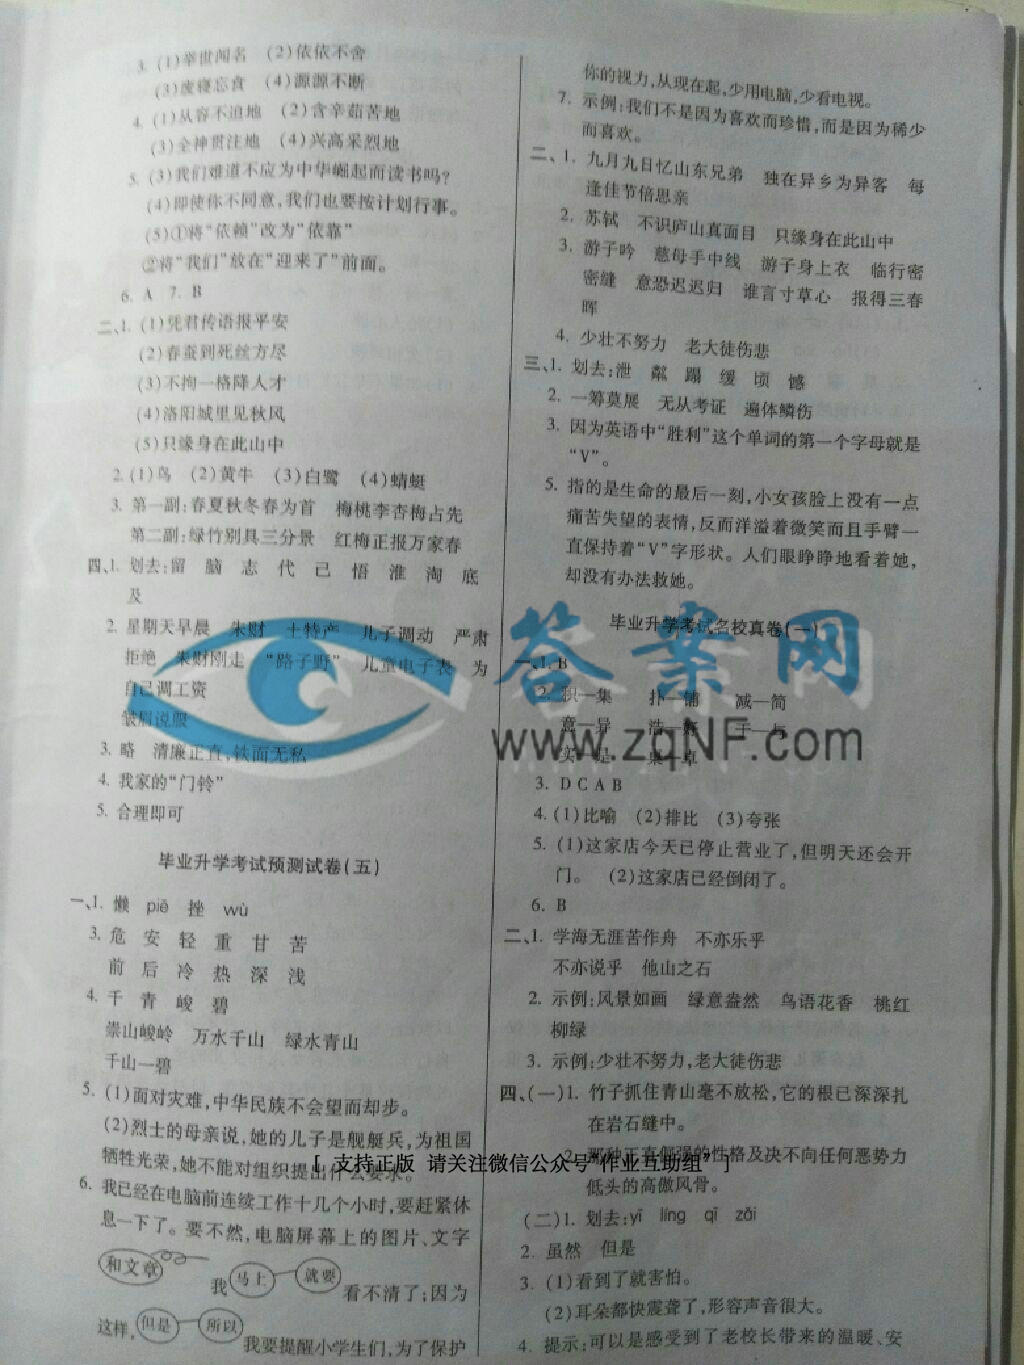 3. (1)举世闻名 (2)依依不舍
(3)废寝忘食 (4)源源不断
4. (1)从容不迫地 (2)含辛茹苦地
(3)全神贯注地 (4)兴高采烈地
5. (3)我们难道不应为中华崛起而读书吗?
(4)即使你不同意,我们也要按计划行事。
(5)①将“依赖”改为“依靠”
②将“我们”放在“迎来了”前面。
6. A 7. B
二、1. (1)凭君传语报平安
(2)春蚕到死丝方尽
(3)不拘一格降人才
(4)洛阳城里见秋风
(5)只缘身在此山中
2. (1)鸟 (2)黄牛 (3)白鹭 (4)蜻蜓
3. 第一副:春夏秋冬春为首 梅桃李杏梅占先
第二副:绿竹别具三分景 红梅正报万家春
四、1. 划去:留 脑 志 代 己 悟 淮 淘 底
及
2. 星期天早晨 朱财 土特产 儿子调动 严肃
拒绝 朱财刚走 “路子野” 儿童电子表 为
自己调工资
皱眉说假
3. 略 清廉正直,铁面无私
4. 我家的“门铃”
5. 合理即可
毕业升学考试预测试卷(五)
一、1. 懒 piē 挫 wù
3. 危 安 轻 重 甘 苦
前 后 冷 热 深 浅
4. 千 青 峻 碧
崇山峻岭 万水千山 绿水青山
千山一碧
5. (1)面对灾难,中华民族不会望而却步。
(2)烈士的母亲说,她的儿子是舰艇兵,为祖国
牺牲光荣,她不能对组织提出什么要求。
6. 我已经在电脑前连续工作十几个小时,要赶紧休
息一下了。要不然,电脑屏幕上的图片、文字
和文章 我 马上 就要 看不清了;因为
这样, 但是 所以 我要提醒小学生们,为了保护
你的视力,从现在起,少用电脑,少看电视。
7. 示例:我们不是因为喜欢而珍惜,而是因为稀少
而喜欢。
二、1. 九月九日忆山东兄弟 独在异乡为异客 每
逢佳节倍思亲
2. 苏轼 不识庐山真面目 只缘身在此山中
3. 游子吟 慈母手中线 游子身上衣 临行密
密缝 意恐迟迟归 谁言寸草心 报得三春
晖
4. 少壮不努力 老大徒伤悲
三、1. 划去:泄 粼 蹋 缓 顷 憾
2. 一筹莫展 无从考证 遍体鳞伤
3. 因为英语中“胜利”这个单词的第一个字母就是
“V”。
5. 指的是生命的最后一刻,小女孩脸上没有一点
痛苦失望的表情,反而洋溢着微笑而且手臂一
直保持着“V”字形状。人们眼睁睁地看着她,
却没有办法救她。
毕业升学考试名校真卷(一)
一、1. B
2. 积—集 扑—铺 减—简
意—异 浩—好 于—与
实—是
3. D C A B
4. (1)比喻 (2)排比 (3)夸张
5. (1)这家店今天已停止营业了,但明天还会开
门。 (2)这家店已经倒闭了。
6. B
二、1. 学海无涯苦作舟 不亦乐乎
不亦说乎 他山之石
2. 示例:风景如画 绿意盎然 鸟语花香 桃红
柳绿
3. 示例:少壮不努力,老大徒伤悲
四、(一)1. 竹子抓住青山毫不放松,它的根已深深扎
在岩石缝中。
2. 那种正直倔强的性格及决不向任何恶势力
低头的高傲风骨。
(二)1. 划去:yī líng qī zǎi
2. 虽然 但是
3. (1)看到了就害怕。
(2)耳朵都快震聋了,形容声音很大。
4. 提示:可以是感受到了老校长带来的温暖、安
答案网
www.zqNF.com
[ 支持正版 请关注微信公众号“作业互助组” ]